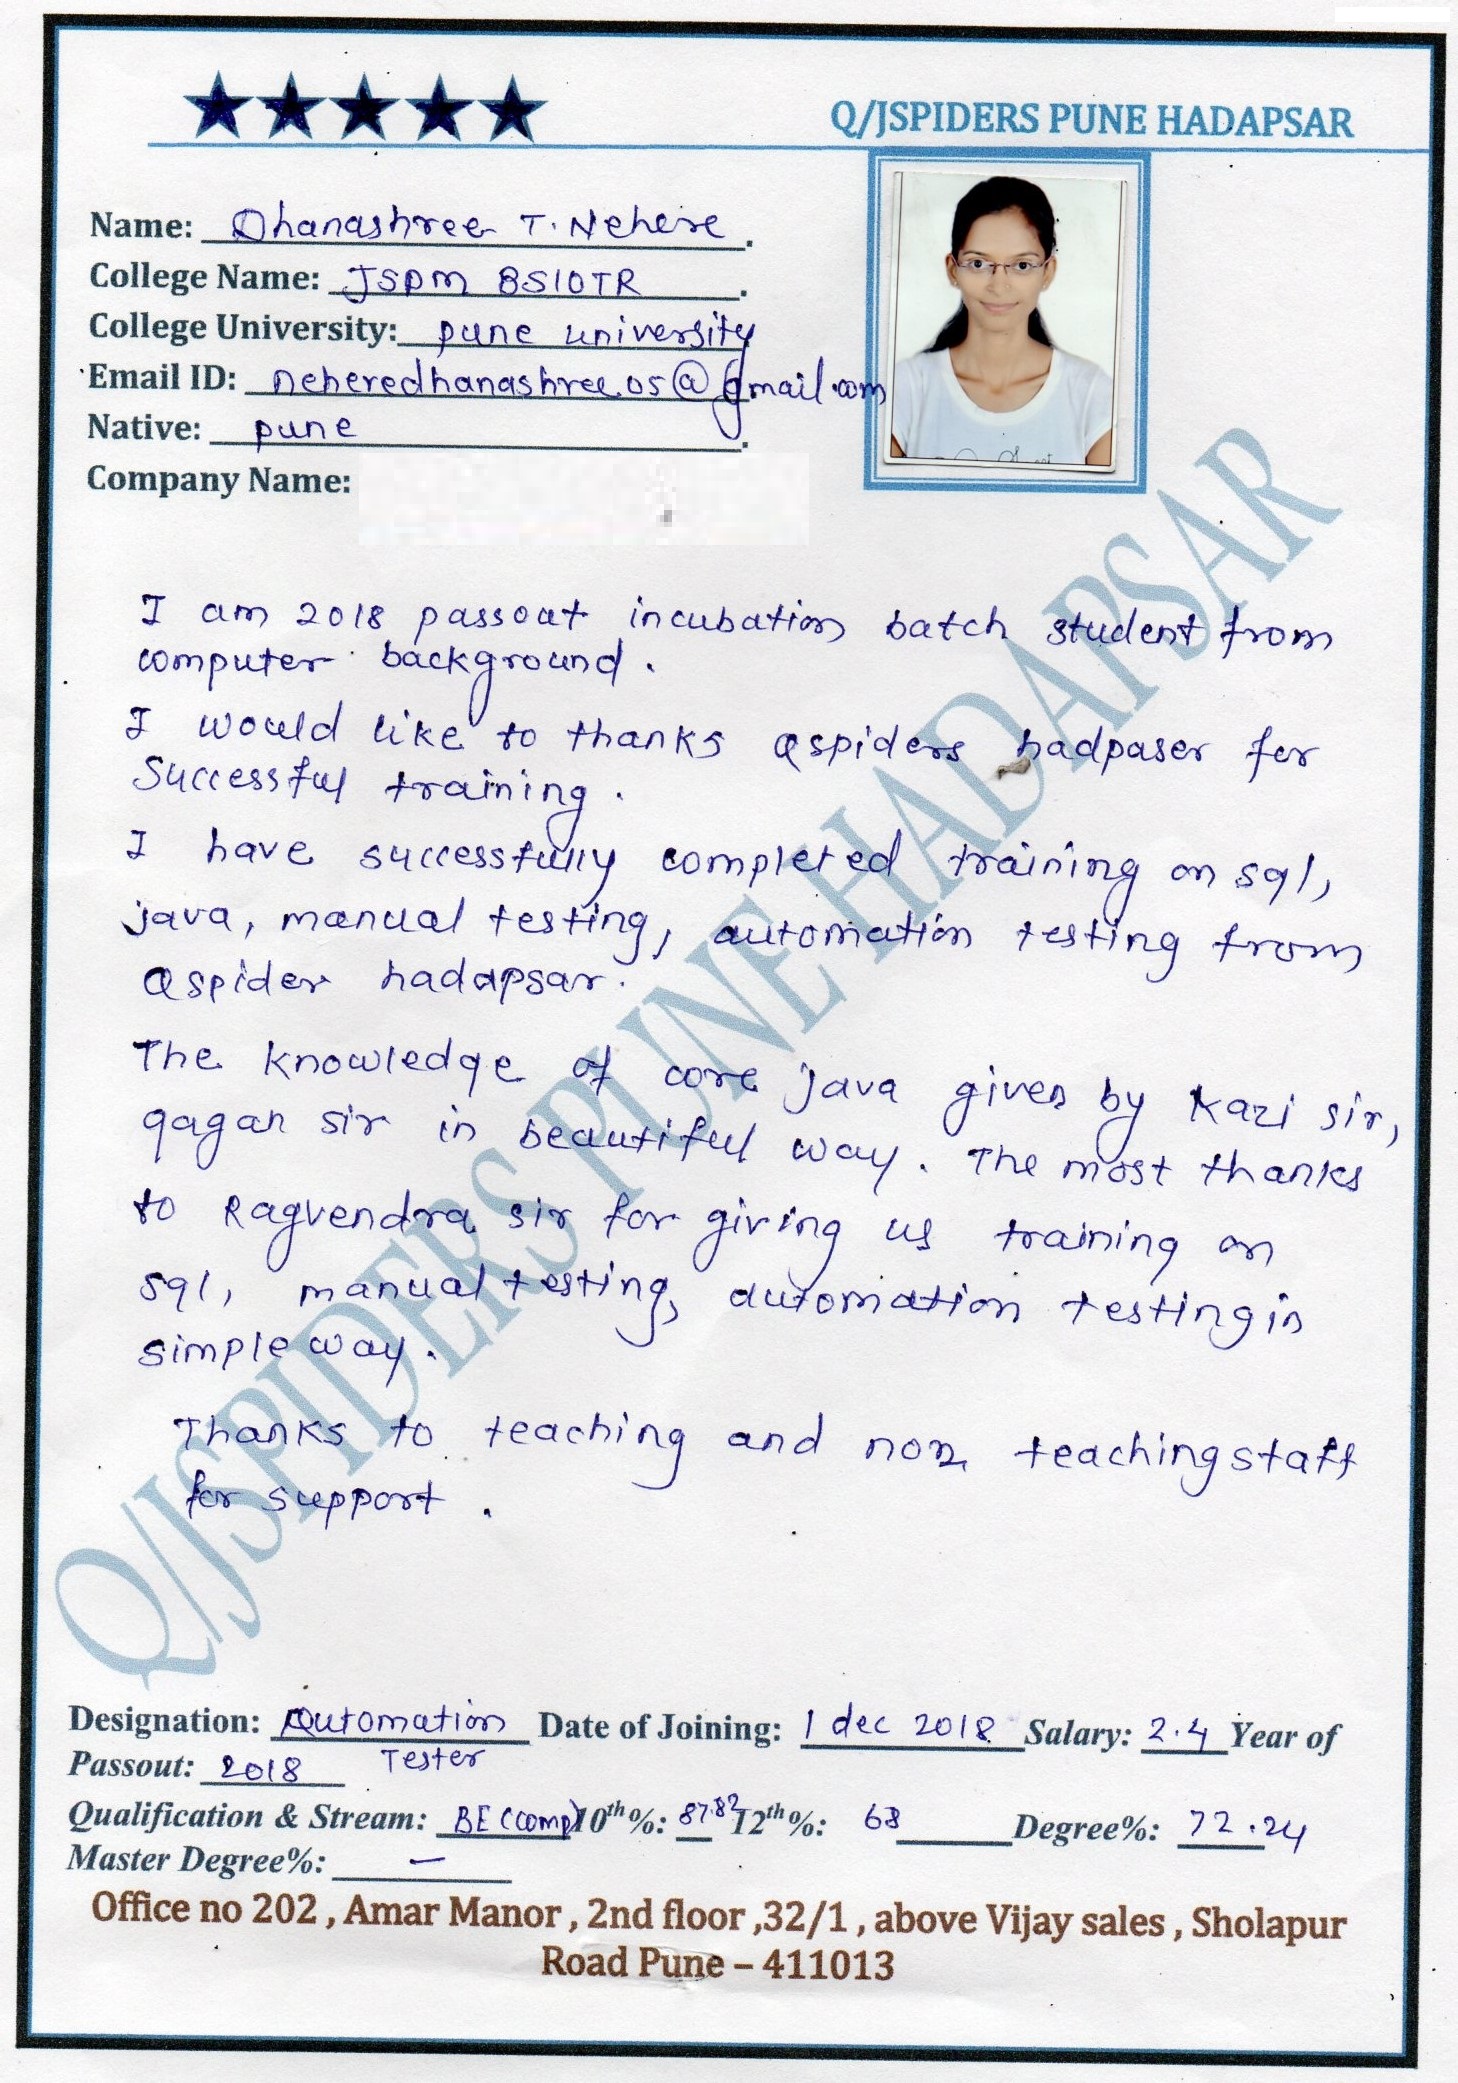 Q/JSPIDERS PUNE HADAPSAR
Name: Dhanashree T. Nehere.
College Name: JSPM BSIOTR.
College University: pune university
Email ID: neheredhanashree.05@gmail.com
Native: pune.
Company Name:
I am 2018 passout incubation batch student from
computer background.
I would like to thanks Qspiders hadpaser for
Successful training.
I have successfully completed training on sql,
java, manual testing, automation testing from
Qspider hadapsar.
The knowledge of core java given by Kazi sir,
gagan sir in beautiful way. The most thanks
to Ragvendra sir for giving us training on
sql, manual testing, automation testing in
simple way.
Thanks to teaching and non teaching staff
for support.
Q/JSPIDERS PUNE HADAPSAR
Designation: Automation Date of Joining: 1 dec 2018 Salary: 2.4 Year of
Passout: 2018 Tester
Qualification & Stream: BE (comp) 10th%: 87.82 12th%: 68 Degree%: 72.24
Master Degree%: —
Office no 202 , Amar Manor , 2nd floor ,32/1 , above Vijay sales , Sholapur
Road Pune – 411013